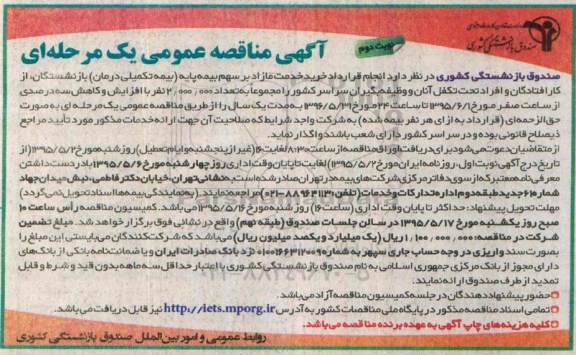 صندوق بازنشستگی کشوری
آگهی مناقصه عمومی یک مرحله‌ای
نوبت دوم
صندوق بازنشستگی کشوری در نظر دارد انجام قرارداد خرید خدمت مازاد بر سهم بیمه پایه (بیمه تکمیلی درمان) بازنشستگان، از
کارافتادگان و افراد تحت تکفل آنان و وظیفه بگیران سراسر کشور را مجموعاً به تعداد ۲٬۰۰۰٬۰۰۰ نفر با افزایش و کاهش سه درصدی
از ساعت صفر مورخ ۱۳۹۵/۶/۱ تا ساعت ۲۴ مورخ ۱۳۹۶/۵/۳۱ به مدت یک سال را از طریق مناقصه عمومی یک مرحله ای به صورت
حق الزحمه ای (قرارداد به ازای هر نفر بیمه شده) به شرکت واجد شرایط که صلاحیت آن جهت ارائه خدمات مذکور مورد تأیید مراجع
ذیصلاح قانونی بوده و در سراسر کشور دارای شعب باشند واگذار نماید.
از متقاضیان دعوت می شود برای دریافت اوراق مناقصه از ساعت ۸:۳۰ لغایت ۱۴ (غیر از پنجشنبه و ایام تعطیل) روز شنبه مورخ ۱۳۹۵/۵/۲ (از
تاریخ درج آگهی نوبت اول، روزنامه ایران مورخ ۱۳۹۵/۵/۲) لغایت تا پایان وقت اداری روز چهارشنبه مورخ ۱۳۹۵/۵/۶ با در دست داشتن
معرفی نامه معتبر که از سوی دفاتر مرکزی شرکت های بیمه در تهران صادر شده است، به نشانی تهران، خیابان دکتر فاطمی، نبش میدان جهاد
شماره ۶۱۰ جدید طبقه دوم اداره تدارکات و خدمات (تلفن ۸۸۹۶۴۱۱۳-۰۲۱) مراجعه نمایند. (به نمایندگی بیمه ها اسناد تحویل نمی گردد)
مهلت تحویل پیشنهاد: حداکثر تا پایان وقت اداری (ساعت ۱۶) روز شنبه مورخ ۱۳۹۵/۵/۱۶ می باشد. کمیسیون مناقصه رأس ساعت ۱۰
صبح روز یکشنبه مورخ ۱۳۹۵/۵/۱۷ در سالن جلسات صندوق (طبقه نهم) واقع در نشانی فوق برگزار خواهد شد. مبلغ تضمین
شرکت در مناقصه: ۱٬۱۰۰٬۰۰۰٬۰۰۰ ریال (یک میلیارد و یکصد میلیون ریال) می باشد که شرکت کنندگان می بایستی این مبلغ را
بصورت سند واریزی در وجه حساب جاری سپهر به شماره نزد بانک صادرات ایران و یا ضمانت نامه بانکی از بانک های
دارای مجوز از بانک مرکزی جمهوری اسلامی به نام صندوق بازنشستگی کشوری با اعتبار حداقل سه ماهه بدون قید و شرط و قابل
تمدید از طرف صندوق ارائه نمایند.
حضور پیشنهاد دهندگان در جلسه کمیسیون مناقصه آزاد می باشد.
تمامی اسناد مناقصه مذکور در پایگاه ملی مناقصات کشور به آدرس http://iets.mporg.ir نیز قابل دریافت می باشد.
کلیه هزینه های چاپ آگهی به عهده برنده مناقصه می باشد.
روابط عمومی و امور بین الملل صندوق بازنشستگی کشوری